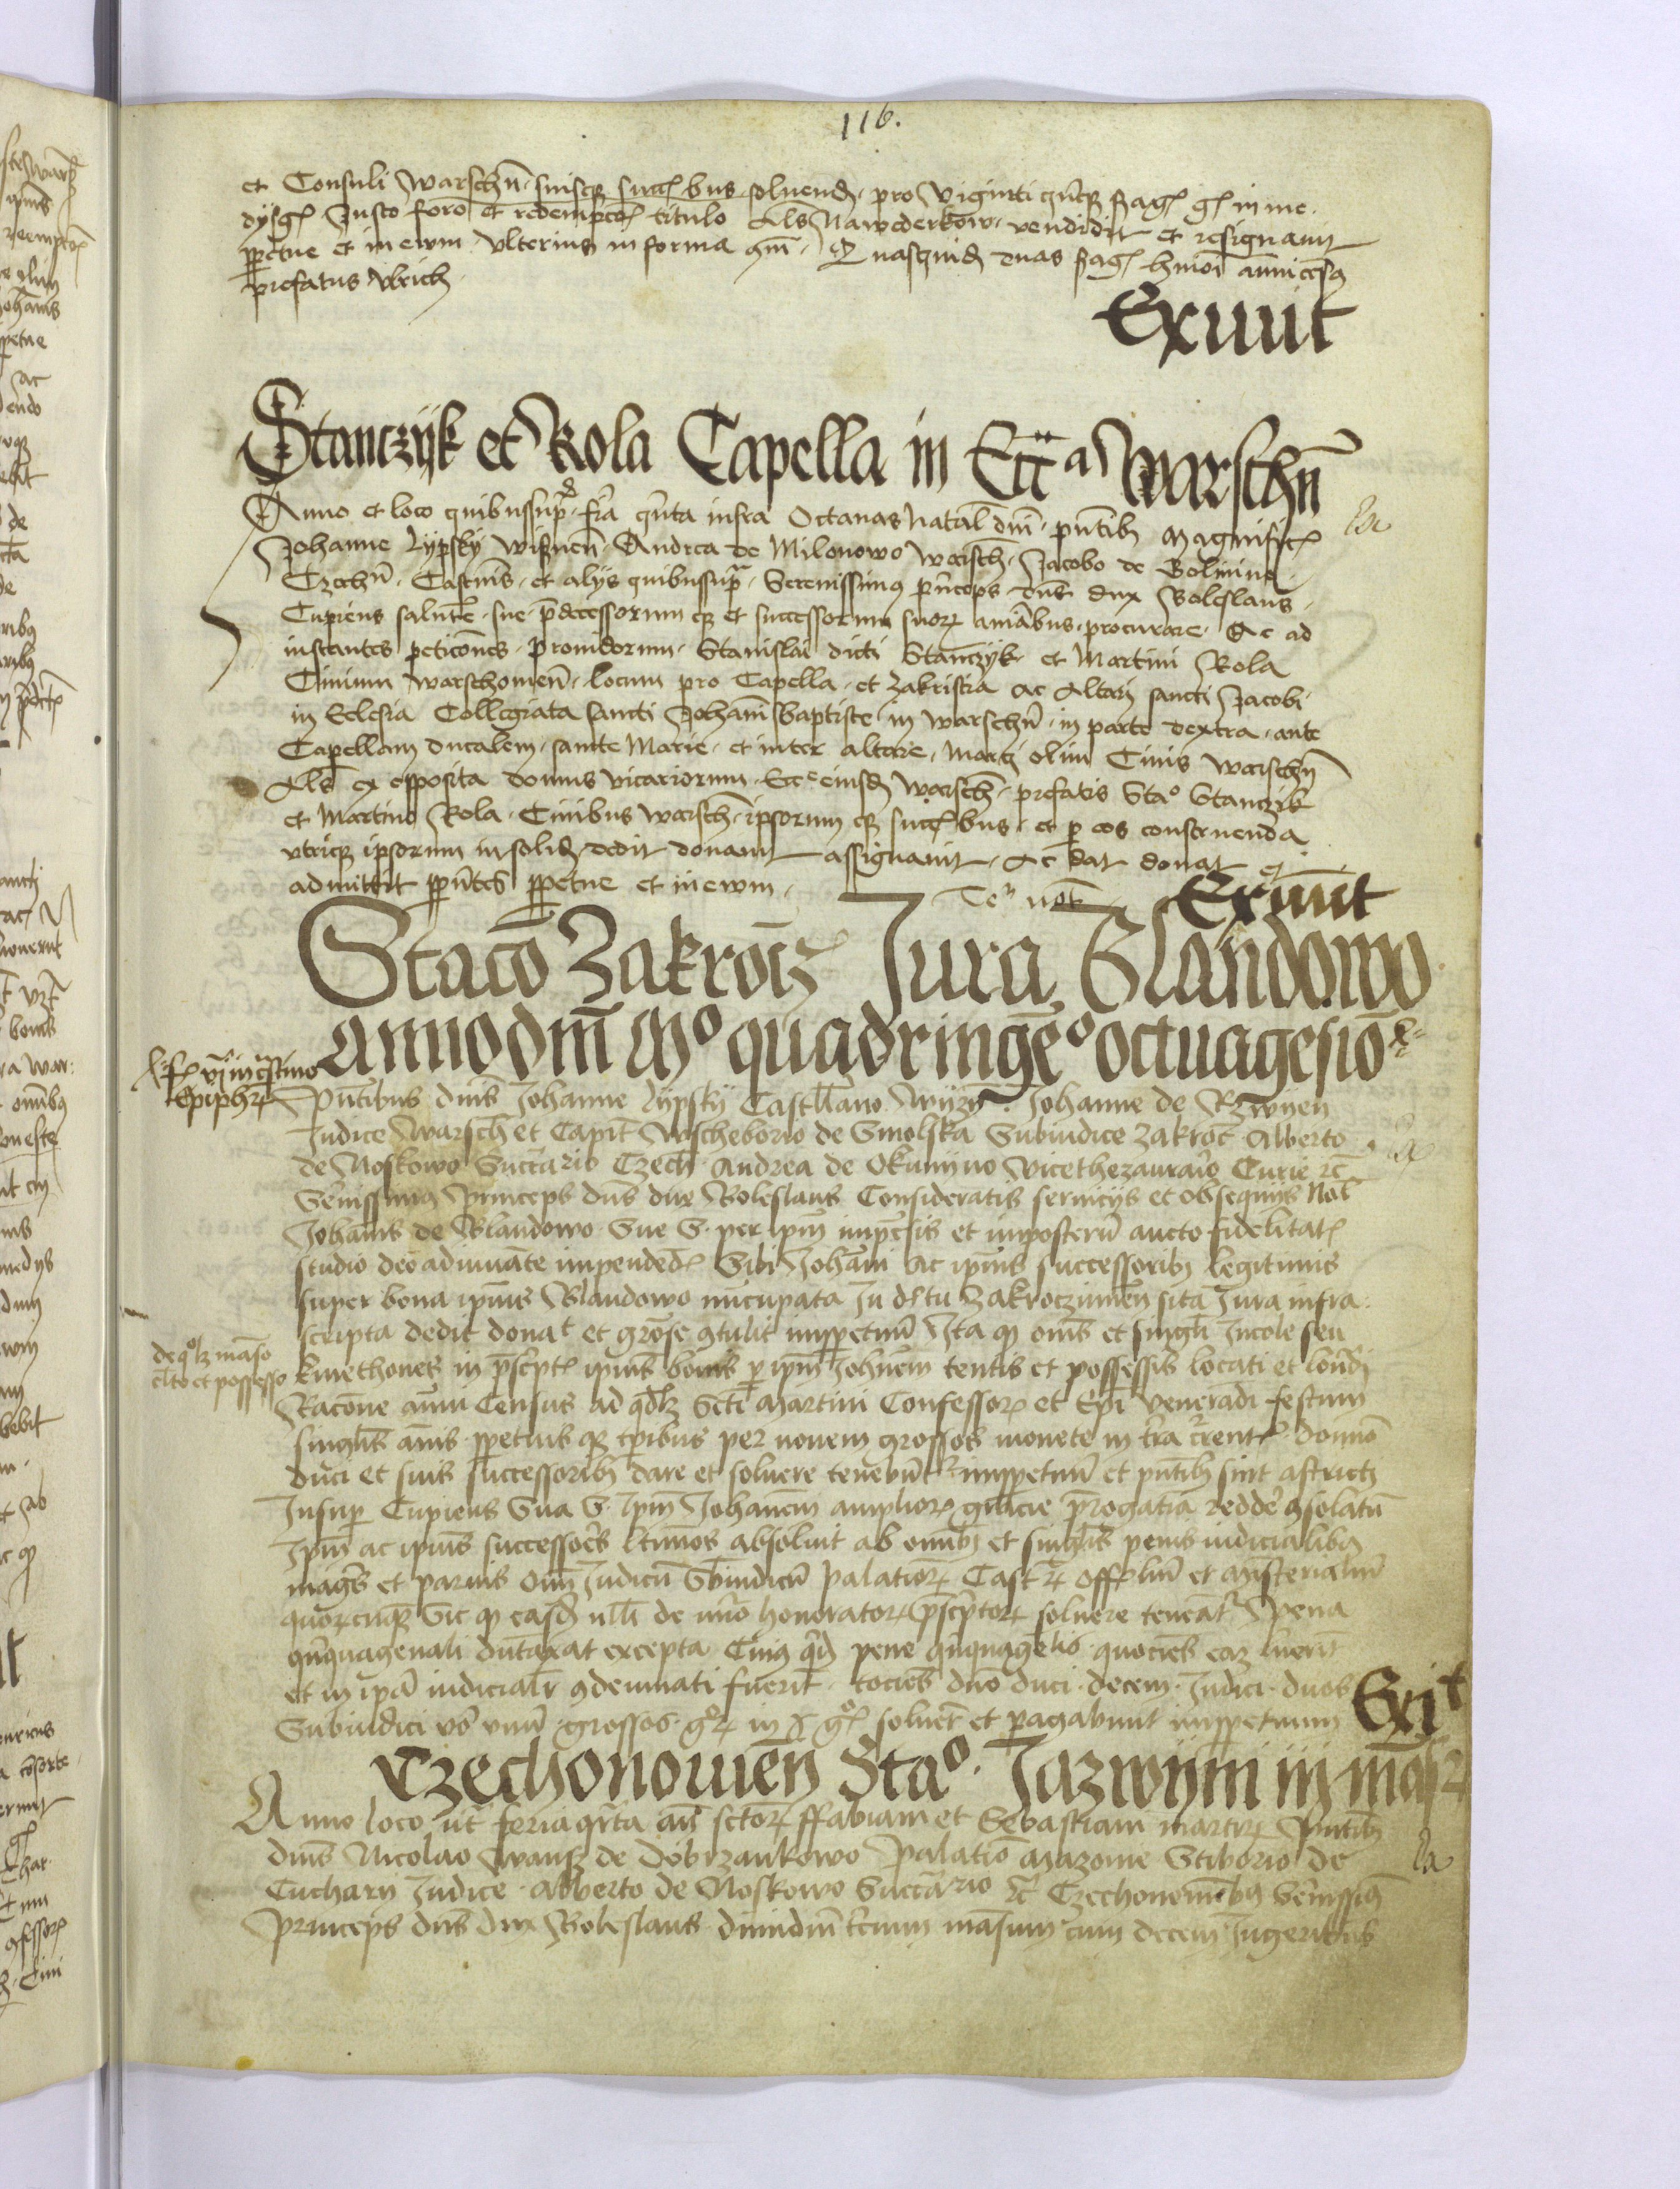 116.
et Consuli Warschn̄ suisq; succ̄bus soluend pro viginti qn̄q; sexag gͬ in me
dysgͬ Justo foro et redempc̄oꝭ titulo Als Nawederkow vendidit et resignauit
ꝑpetue et in ewm vlterius in forma ꝯm̄ Quasquid duas sexag hmōi ann̄ cēsꝯ
prefatus Vlrich
Exiuit
Stanczÿk et Rola Capella in Ecc̄a Warschn̄
Anno et loco quibus supra fr̄a qn̄ta infra Octauas Natal dn̄i pn̄tib; Magnificꝭ
Johanne Lypskÿ Wisnen̄ Andrea de Milonowo Warsch̄ Jacobo de Golinino
Czechn̄ Castn̄is et alÿs quibus supra Serenissimꝰ pn̄ceps dn̄s dux Boleslaus
Cupiens salutē sue p̄decessorum q; et successorum suoꝝ aīabus procurare Ac ad
instantes peticōnes prouidorum Stanislai dicti Stanczÿk et Martini Rola
Ciuium Warschouien̄ locum pro Capella et Zakristia ac Altari sancti Jacobi
in Eclesia Collegiata sancti Johan̄i Baptiste in Warschn̄ in parte dextra ante
Capellam ducalem sancte Marie et inter altare Marci olim Ciuis Warschn̄
Als ex opposita domus vicariorum Ecc̄e eiusd Warsch̄ prefatis Stao Stanczik
et Martino Rola Ciuibus Warsch̄ ipsorum q; succ̄bus et ꝑ eos construenda
vtriq; ipsorum in solid dedit donauit assignauit Ac dat donat et
admittit ꝑpn̄tes ꝑpetue et in ewm
Exiuit
Stacō Zakrocz Jura Blandowo
Anno dn̄i Mo quadringēo octuagesiō
Epiph̄ꝝ
Pn̄tibus dn̄is Johanne Lÿpskÿ Castellano Wÿzn̄ Johanne de Rzwÿen
Judice Warsch̄ et Capit Wscheborio de Smolska Subiudice Zakroc̄ Alberto
de Noskowo Succ̄ario Czech̄ Andrea de Okunÿno Vicethezaurar̄o Curie rc̄
Serenissimꝰ princeps dn̄s dux Boleslaus Consideratis seruicÿs et obsequÿs Nob
Johan̄is de Blandowo Sue S. per ipm̄ impēsis et imposterū aucto fidelitatꝭ
studio deo adiuuāte impendēdꝭ Sibi Johan̄i ac ipius successorib; legitimis
super bona ipius Blandowo nūcupata In dctu Zakroczimen̄ sita Jura infra
scripta dedit donat et grōse ꝯtulit imꝑpetuū Ita qꝫ om̄s et singłi Incole seu
kmethones in p̄scptꝭ ipius bonis ꝑ ipm̄ John̄em tentis et possessis locati et locādi
Racōne an̄ui Census ad qdlꝫ Scti Martini Confessorꝭ et Epi venerādi festum
singłis an̄is ꝑpetuis qꝫ tꝑibus per nouem grossos monete in tr̄a curentꝭ domino
duci et suis successorib; dare et soluere tenebūt imꝑpetuū et pn̄tib; sint astricti
Insuꝑ Cupiens Sua S. Ipm̄ Johan̄em amplioꝝ gracie p̄rogatiua redder̄ ꝯsolatū
Ipm̄ ac ipius successores ltimos absoluit ab omib; et singłis penis iudicialib;
magis et paruis Oīm Judicū Sbiudicū palatinoꝝ Castꝝ Offłiū et ministerialiū
quorcunq; Sic qꝫ easd nłłi de nūro honoratoꝝ p̄scptoꝝ soluere teneātꝰ Pena
qn̄quagenali dūtaxat excepta Cuiꝰ qd pene qn̄quagelis quocies eaꝫ luerīt
et in ipa iudicialr̄ ꝯdemnati fuerīt tocies dn̄o duci decem Judici duos
Subiudici vo vnū grossos gꝝ in x g soluēt et ꝑagabunt imꝑpetuum
Exit
Czechonouien̄ Stao Jazwÿnÿ iÿ masꝝ
Anno loco ut feria qr̄ta an̄ sctoꝝ ffabiani et Sebastiani martiꝝ Pn̄tib;
dn̄is Nicolao Wansz de Dobrzankowo Palatino Mazouie Stiborio de
Cucharÿ Judice Alberto de Noskowo Succ̄ario rc̄ Czechonouien̄b; Ser̄nissiꝰ
Princeps dn̄s dux Boleslaus dimidiū trcium mansum cum decem Jugeribus